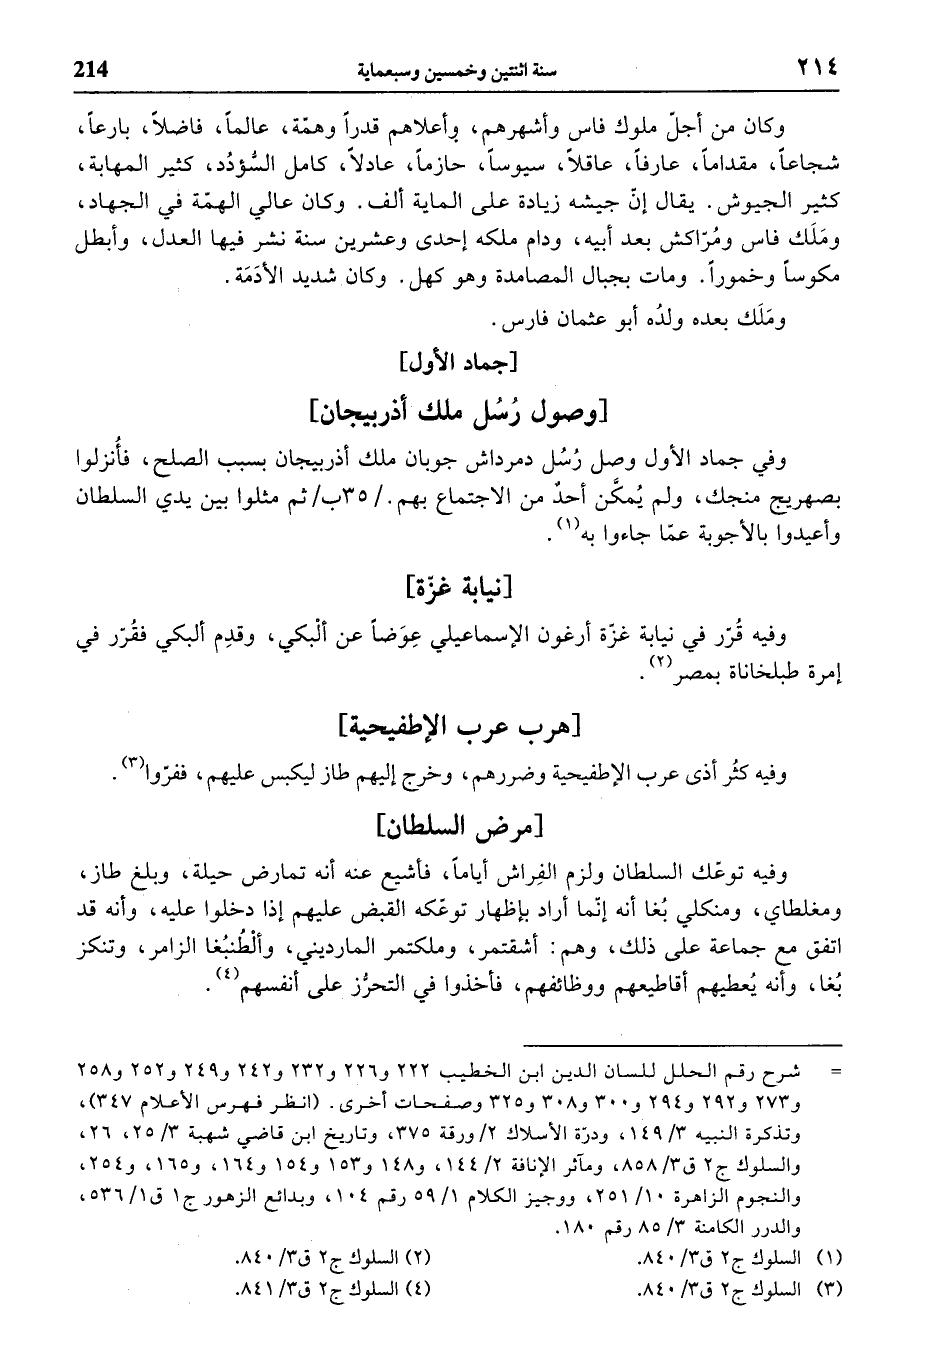 ٢١٤ سنة اثنتين وخمسين وسبعماية 214
وكان من أجلّ ملوك فاس وأشهرهم، وأعلاهم قدراً وهمّة، عالماً، فاضلاً، بارعاً،
شجاعاً، مقداماً، عارفاً، عاقلاً، سيوساً، حازماً، عادلاً، كامل السُّؤدُد، كثير المهابة،
كثير الجيوش. يقال إنّ جيشه زيادة على الماية ألف. وكان عالي الهمّة في الجهاد،
ومَلَك فاس ومُرّاكش بعد أبيه، ودام ملكه إحدى وعشرين سنة نشر فيها العدل، وأبطل
مكوساً وخموراً. ومات بجبال المصامدة وهو كهل. وكان شديد الأدَمَة.
ومَلَك بعده ولدُه أبو عثمان فارس.
[جماد الأول]
[وصول رُسُل ملك أذربيجان]
وفي جماد الأول وصل رُسُل دمرداش جوبان ملك أذربيجان بسبب الصلح، فأُنزلوا
بصهريج منجك، ولم يُمكَّن أحدٌ من الاجتماع بهم. /٣٥ب/ ثم مثلوا بين يدي السلطان
وأعيدوا بالأجوبة عمّا جاءوا به(١).
[نيابة غزّة]
وفيه قُرّر في نيابة غزّة أرغون الإسماعيلي عِوَضاً عن ألْبكي، وقدِم ألبكي فقُرّر في
إمرة طبلخاناة بمصر(٢).
[هرب عرب الإطفيحية]
وفيه كثُر أذى عرب الإطفيحية وضررهم، وخرج إليهم طاز ليكبس عليهم، ففرّوا(٣).
[مرض السلطان]
وفيه توعّك السلطان ولزم الفِراش أياماً، فأشيع عنه أنه تمارض حيلة، وبلغ طاز،
ومغلطاي، ومنكلي بُغا أنه إنّما أراد بإظهار توعّكه القبض عليهم إذا دخلوا عليه، وأنه قد
اتفق مع جماعة على ذلك، وهم: أشقتمر، وملكتمر المارديني، وألْطُنبُغا الزامر، وتنكز
بُغا، وأنه يُعطيهم أقاطيعهم ووظائفهم، فأخذوا في التحرُّز على أنفسهم(٤).
= شرح رقم الحلل للسان الدين ابن الخطيب ٢٢٢ و٢٢٦ و٢٣٢ و٢٤٢ و٢٤٩ و٢٥٢ و٢٥٨
و٢٧٣ و٢٩٢ و٢٩٤ و٣٠٠ و٣٠٨ و٣٢٥ وصفحات أخرى. (انظر فهرس الأعلام ٣٤٧)،
وتذكرة النبيه ٣/ ١٤٩، ودرّة الأسلاك ٢/ ورقة ٣٧٥، وتاريخ ابن قاضي شهبة ٣/ ٢٥، ٢٦،
والسلوك ج٢ ق٣/ ٨٥٨، ومآثر الإنافة ٢/ ١٤٤، و١٤٨ و١٥٣ و١٥٤ و١٦٤، و١٦٥، و٢٥٤،
والنجوم الزاهرة ١٠/ ٢٥١، ووجيز الكلام ١/ ٥٩ رقم ١٠٤، وبدائع الزهور ج١ ق١/ ٥٣٦،
والدرر الكامنة ٣/ ٨٥ رقم ١٨٠.
(١) السلوك ج٢ ق٣/ ٨٤٠. (٢) السلوك ج٢ ق٣/ ٨٤٠.
(٣) السلوك ج٢ ق٣/ ٨٤٠. (٤) السلوك ج٢ ق٣/ ٨٤١.